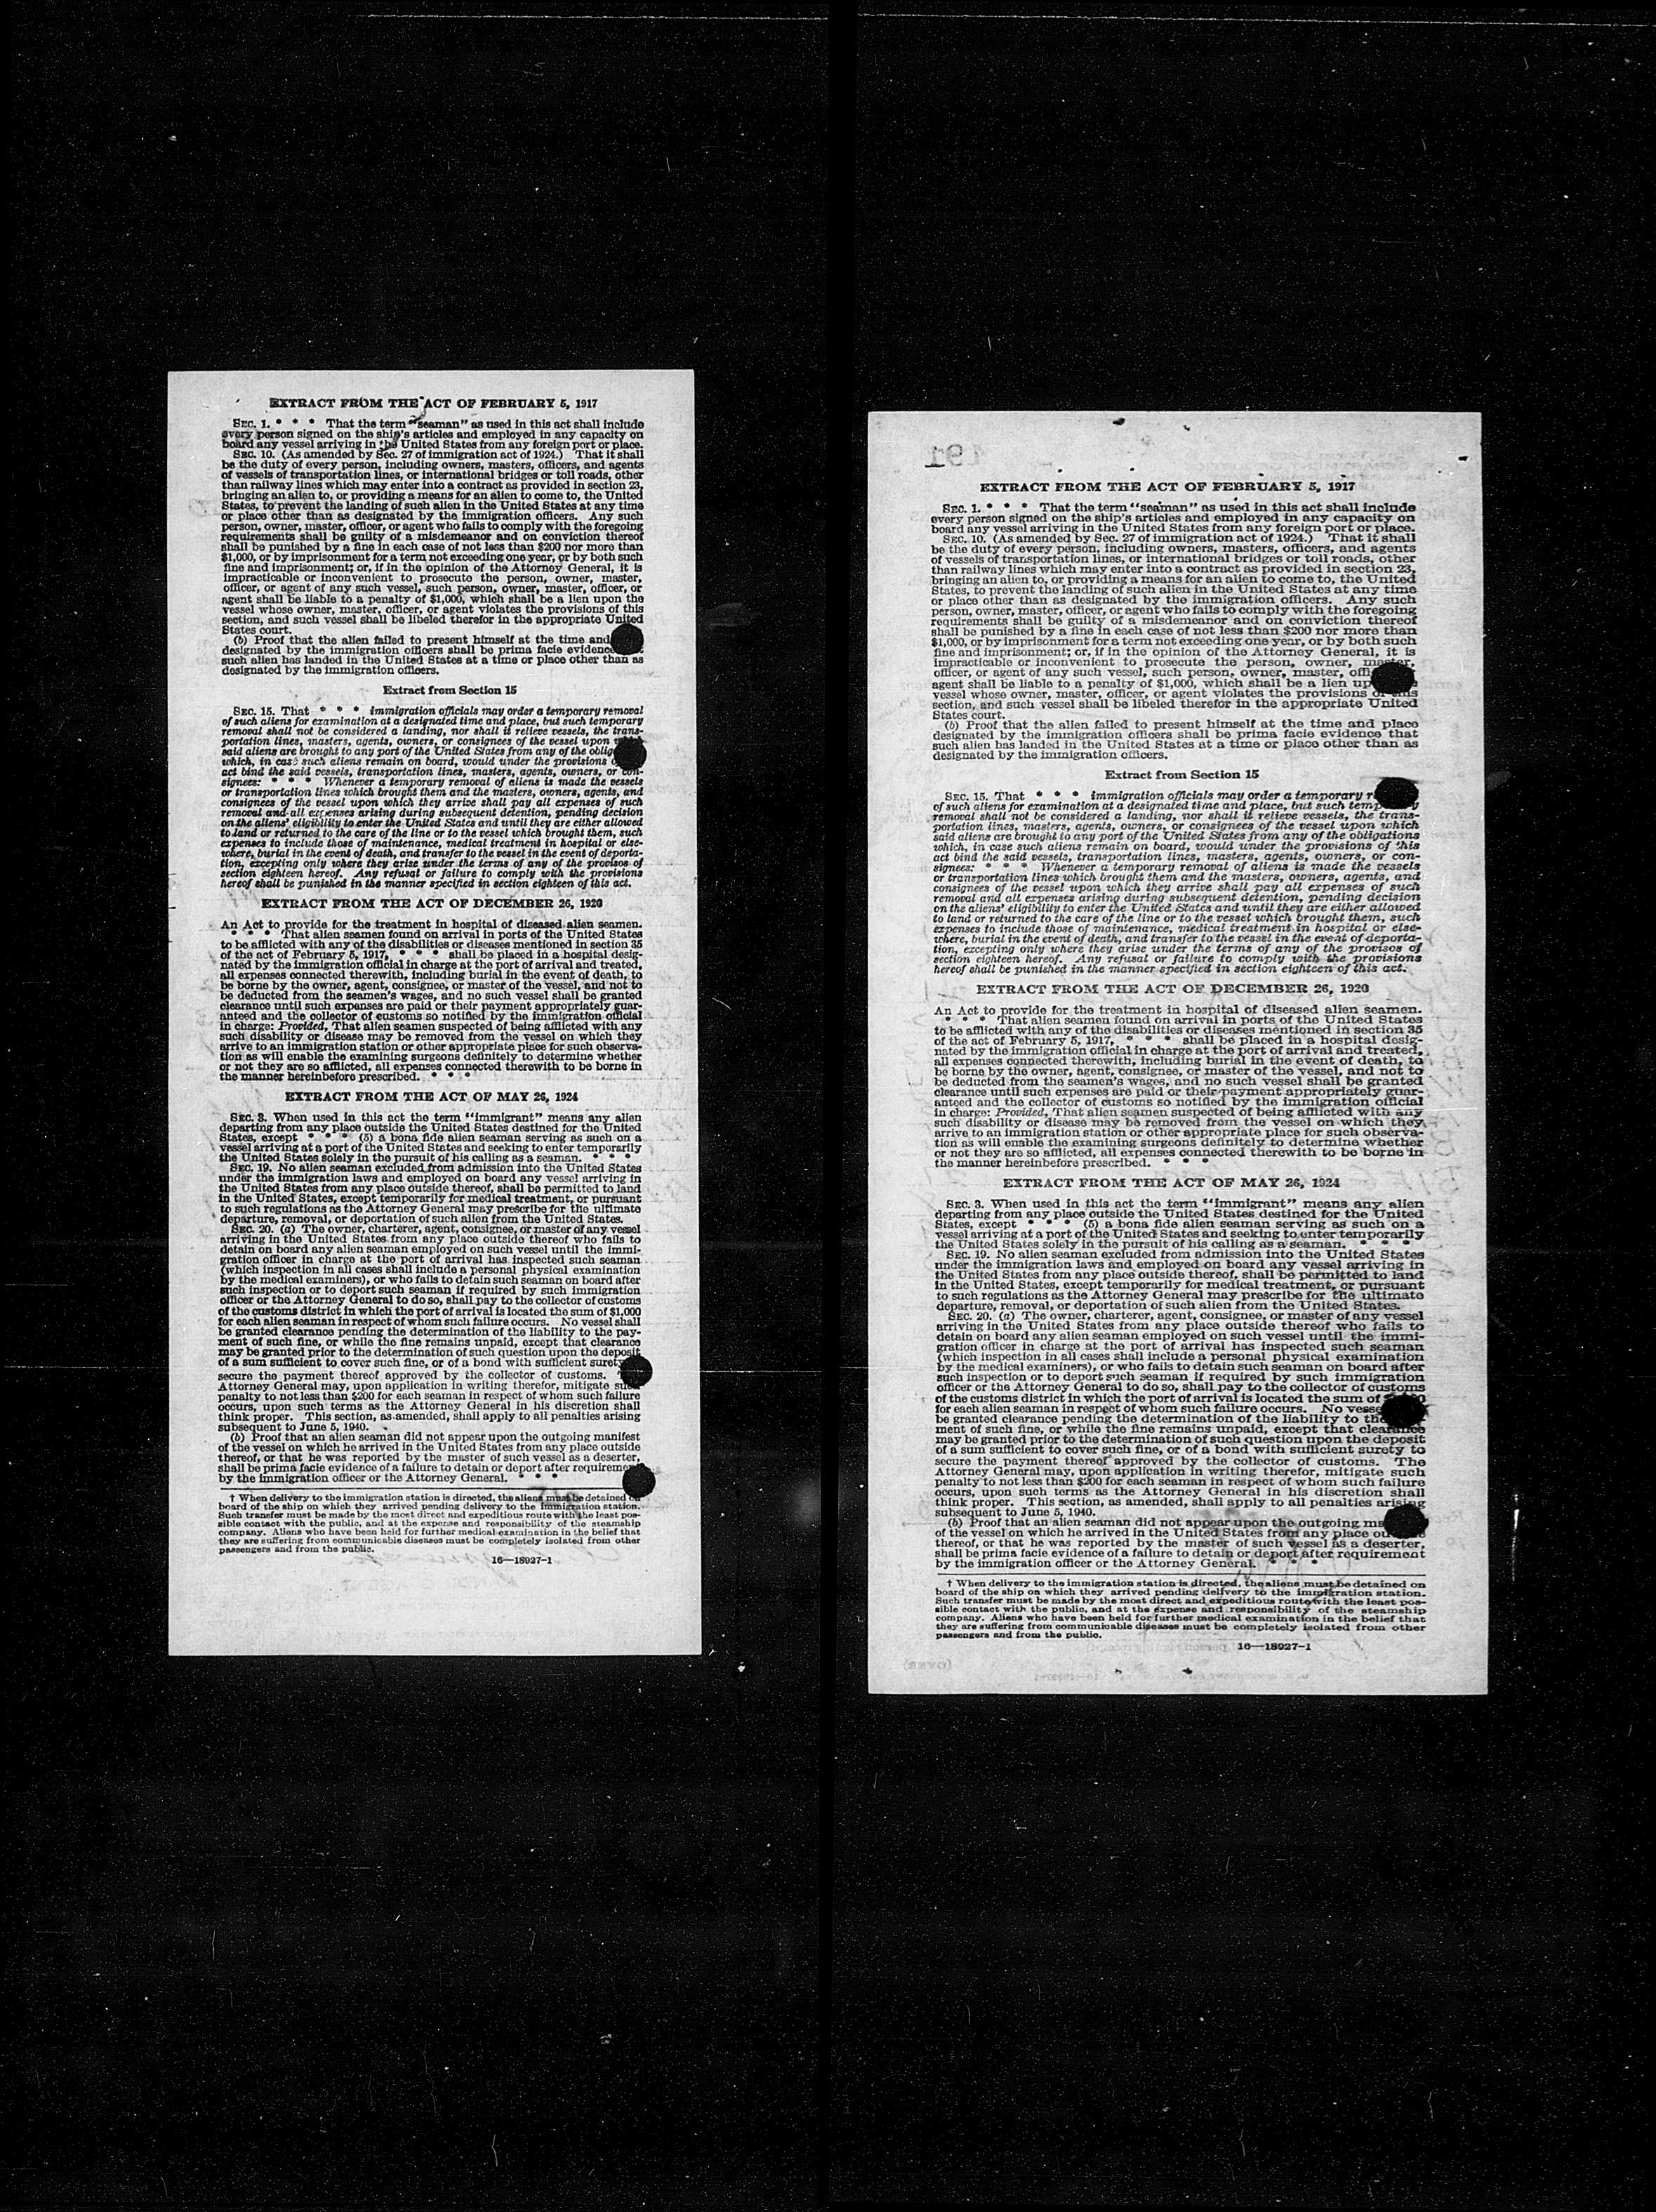 EXTRACT FROM THE ACT OF FEBRUARY 5, 1917
SEC. 1. * * * That the term "seaman" as used in this act shall include
every person signed on the ship's articles and employed in any capacity on
board any vessel arriving in the United States from any foreign port or place.
SEC. 10. (As amended by Sec. 27 of immigration act of 1924.) That it shall
be the duty of every person, including owners, masters, officers, and agents
of vessels of transportation lines, or international bridges or toll roads, other
than railway lines which may enter into a contract as provided in section 23,
bringing an alien to, or providing a means for an alien to come to, the United
States, to prevent the landing of such alien in the United States at any time
or place other than as designated by the immigration officers. Any such
person, owner, master, officer, or agent who fails to comply with the foregoing
requirements shall be guilty of a misdemeanor and on conviction thereof
shall be punished by a fine in each case of not less than $200 nor more than
$1,000, or by imprisonment for a term not exceeding one year, or by both such
fine and imprisonment; or, if in the opinion of the Attorney General, it is
impracticable or inconvenient to prosecute the person, owner, master,
officer, or agent of any such vessel, such person, owner, master, officer, or
agent shall be liable to a penalty of $1,000, which shall be a lien upon the
vessel whose owner, master, officer, or agent violates the provisions of this
section, and such vessel shall be libeled therefor in the appropriate United
States court.
(b) Proof that the alien failed to present himself at the time and
designated by the immigration officers shall be prima facie evidence
such alien has landed in the United States at a time or place other than as
designated by the immigration officers.
Extract from Section 15
SEC. 15. That * * * immigration officials may order a temporary removal
of such aliens for examination at a designated time and place, but such temporary
removal shall not be considered a landing, nor shall it relieve vessels, the trans-
portation lines, masters, agents, owners, or consignees of the vessel upon
said aliens are brought to any port of the United States from any of the
which, in case such aliens remain on board, would under the provisions
act bind the said vessels, transportation lines, masters, agents, owners, or con-
signees: * * * Whenever a temporary removal of aliens is made the vessels
or transportation lines which brought them and the masters, owners, agents, and
consignees of the vessel upon which they arrive shall pay all expenses of such
removal and all expenses arising during subsequent detention, pending decision
on the aliens' eligibility to enter the United States and until they are either allowed
to land or returned to the care of the line or to the vessel which brought them, such
expenses to include those of maintenance, medical treatment in hospital or else-
where, burial in the event of death, and transfer to the vessel in the event of deporta-
tion, excepting only where they arise under the terms of any of the provisos of
section eighteen hereof. Any refusal or failure to comply with the provisions
hereof shall be punished in the manner specified in section eighteen of this act.
EXTRACT FROM THE ACT OF DECEMBER 26, 1920
An Act to provide for the treatment in hospital of diseased alien seamen.
* * * That alien seamen found on arrival in ports of the United States
to be afflicted with any of the disabilities or diseases mentioned in section 35
of the act of February 5, 1917, * * * shall be placed in a hospital desig-
nated by the immigration official in charge at the port of arrival and treated,
all expenses connected therewith, including burial in the event of death, to
be borne by the owner, agent, consignee, or master of the vessel, and not to
be deducted from the seamen's wages, and no such vessel shall be granted
clearance until such expenses are paid or their payment appropriately guar-
anteed and the collector of customs so notified by the immigration official
in charge: Provided, That alien seamen suspected of being afflicted with any
such disability or disease may be removed from the vessel on which they
arrive to an immigration station or other appropriate place for such observa-
tion as will enable the examining surgeons definitely to determine whether
or not they are so afflicted, all expenses connected therewith to be borne in
the manner hereinbefore prescribed. * * *
EXTRACT FROM THE ACT OF MAY 26, 1924
SEC. 3. When used in this act the term "immigrant" means any alien
departing from any place outside the United States destined for the United
States, except * * * (5) a bona fide alien seaman serving as such on a
vessel arriving at a port of the United States and seeking to enter temporarily
the United States solely in the pursuit of his calling as a seaman. * * *
SEC. 19. No alien seaman excluded from admission into the United States
under the immigration laws and employed on board any vessel arriving in
the United States from any place outside thereof, shall be permitted to land
in the United States, except temporarily for medical treatment, or pursuant
to such regulations as the Attorney General may prescribe for the ultimate
departure, removal, or deportation of such alien from the United States.
SEC. 20. (a) The owner, charterer, agent, consignee, or master of any vessel
arriving in the United States from any place outside thereof who fails to
detain on board any alien seaman employed on such vessel until the immi-
gration officer in charge at the port of arrival has inspected such seaman
(which inspection in all cases shall include a personal physical examination
by the medical examiners), or who fails to detain such seaman on board after
such inspection or to deport such seaman if required by such immigration
officer or the Attorney General to do so, shall pay to the collector of customs
of the customs district in which the port of arrival is located the sum of $1,000
for each alien seaman in respect of whom such failure occurs. No vessel shall
be granted clearance pending the determination of the liability to the pay-
ment of such fine, or while the fine remains unpaid, except that clearance
may be granted prior to the determination of such question upon the deposit
of a sum sufficient to cover such fine, or of a bond with sufficient surety
secure the payment thereof approved by the collector of customs.
Attorney General may, upon application in writing therefor, mitigate such
penalty to not less than $200 for each seaman in respect of whom such failure
occurs, upon such terms as the Attorney General in his discretion shall
think proper. This section, as amended, shall apply to all penalties arising
subsequent to June 5, 1940.
(b) Proof that an alien seaman did not appear upon the outgoing manifest
of the vessel on which he arrived in the United States from any place outside
thereof, or that he was reported by the master of such vessel as a deserter,
shall be prima facie evidence of a failure to detain or deport after requirement
by the immigration officer or the Attorney General. * * *
† When delivery to the immigration station is directed, the aliens must be detained on
board of the ship on which they arrived pending delivery to the immigration station.
Such transfer must be made by the most direct and expeditious route with the least pos-
sible contact with the public, and at the expense and responsibility of the steamship
company. Aliens who have been held for further medical examination in the belief that
they are suffering from communicable diseases must be completely isolated from other
passengers and from the public.
16—18927-1
491
EXTRACT FROM THE ACT OF FEBRUARY 5, 1917
SEC. 1. * * * That the term "seaman" as used in this act shall include
every person signed on the ship's articles and employed in any capacity on
board any vessel arriving in the United States from any foreign port or place.
SEC. 10. (As amended by Sec. 27 of immigration act of 1924.) That it shall
be the duty of every person, including owners, masters, officers, and agents
of vessels of transportation lines, or international bridges or toll roads, other
than railway lines which may enter into a contract as provided in section 23,
bringing an alien to, or providing a means for an alien to come to, the United
States, to prevent the landing of such alien in the United States at any time
or place other than as designated by the immigration officers. Any such
person, owner, master, officer, or agent who fails to comply with the foregoing
requirements shall be guilty of a misdemeanor and on conviction thereof
shall be punished by a fine in each case of not less than $200 nor more than
$1,000, or by imprisonment for a term not exceeding one year, or by both such
fine and imprisonment; or, if in the opinion of the Attorney General, it is
impracticable or inconvenient to prosecute the person, owner, master,
officer, or agent of any such vessel, such person, owner, master,
agent shall be liable to a penalty of $1,000, which shall be a lien
vessel whose owner, master, officer, or agent violates the provisions of this
section, and such vessel shall be libeled therefor in the appropriate United
States court.
(b) Proof that the alien failed to present himself at the time and place
designated by the immigration officers shall be prima facie evidence that
such alien has landed in the United States at a time or place other than as
designated by the immigration officers.
Extract from Section 15
SEC. 15. That * * * immigration officials may order a temporary
of such aliens for examination at a designated time and place, but such
removal shall not be considered a landing, nor shall it relieve vessels, the trans-
portation lines, masters, agents, owners, or consignees of the vessel upon which
said aliens are brought to any port of the United States from any of the obligations
which, in case such aliens remain on board, would under the provisions of this
act bind the said vessels, transportation lines, masters, agents, owners, or con-
signees: * * * Whenever a temporary removal of aliens is made the vessels
or transportation lines which brought them and the masters, owners, agents, and
consignees of the vessel upon which they arrive shall pay all expenses of such
removal and all expenses arising during subsequent detention, pending decision
on the aliens' eligibility to enter the United States and until they are either allowed
to land or returned to the care of the line or to the vessel which brought them, such
expenses to include those of maintenance, medical treatment in hospital or else-
where, burial in the event of death, and transfer to the vessel in the event of deporta-
tion, excepting only where they arise under the terms of any of the provisos of
section eighteen hereof. Any refusal or failure to comply with the provisions
hereof shall be punished in the manner specified in section eighteen of this act.
EXTRACT FROM THE ACT OF DECEMBER 26, 1920
An Act to provide for the treatment in hospital of diseased alien seamen.
* * * That alien seamen found on arrival in ports of the United States
to be afflicted with any of the disabilities or diseases mentioned in section 35
of the act of February 5, 1917, * * * shall be placed in a hospital desig-
nated by the immigration official in charge at the port of arrival and treated,
all expenses connected therewith, including burial in the event of death, to
be borne by the owner, agent, consignee, or master of the vessel, and not to
be deducted from the seamen's wages, and no such vessel shall be granted
clearance until such expenses are paid or their payment appropriately guar-
anteed and the collector of customs so notified by the immigration official
in charge: Provided, That alien seamen suspected of being afflicted with any
such disability or disease may be removed from the vessel on which they
arrive to an immigration station or other appropriate place for such observa-
tion as will enable the examining surgeons definitely to determine whether
or not they are so afflicted, all expenses connected therewith to be borne in
the manner hereinbefore prescribed. * * *
EXTRACT FROM THE ACT OF MAY 26, 1924
SEC. 3. When used in this act the term "immigrant" means any alien
departing from any place outside the United States destined for the United
States, except * * * (5) a bona fide alien seaman serving as such on a
vessel arriving at a port of the United States and seeking to enter temporarily
the United States solely in the pursuit of his calling as a seaman. * * *
SEC. 19. No alien seaman excluded from admission into the United States
under the immigration laws and employed on board any vessel arriving in
the United States from any place outside thereof, shall be permitted to land
in the United States, except temporarily for medical treatment, or pursuant
to such regulations as the Attorney General may prescribe for the ultimate
departure, removal, or deportation of such alien from the United States.
SEC. 20. (a) The owner, charterer, agent, consignee, or master of any vessel
arriving in the United States from any place outside thereof who fails to
detain on board any alien seaman employed on such vessel until the immi-
gration officer in charge at the port of arrival has inspected such seaman
(which inspection in all cases shall include a personal physical examination
by the medical examiners), or who fails to detain such seaman on board after
such inspection or to deport such seaman if required by such immigration
officer or the Attorney General to do so, shall pay to the collector of customs
of the customs district in which the port of arrival is located the sum of
for each alien seaman in respect of whom such failure occurs. No
be granted clearance pending the determination of the liability to the
ment of such fine, or while the fine remains unpaid, except that clearance
may be granted prior to the determination of such question upon the deposit
of a sum sufficient to cover such fine, or of a bond with sufficient surety to
secure the payment thereof approved by the collector of customs. The
Attorney General may, upon application in writing therefor, mitigate such
penalty to not less than $200 for each seaman in respect of whom such failure
occurs, upon such terms as the Attorney General in his discretion shall
think proper. This section, as amended, shall apply to all penalties arising
subsequent to June 5, 1940.
(b) Proof that an alien seaman did not appear upon the outgoing
of the vessel on which he arrived in the United States from any place
thereof, or that he was reported by the master of such vessel as a deserter,
shall be prima facie evidence of a failure to detain or deport after requirement
by the immigration officer or the Attorney General. * * *
† When delivery to the immigration station is directed, the aliens must be detained on
board of the ship on which they arrived pending delivery to the immigration station.
Such transfer must be made by the most direct and expeditious route with the least pos-
sible contact with the public, and at the expense and responsibility of the steamship
company. Aliens who have been held for further medical examination in the belief that
they are suffering from communicable diseases must be completely isolated from other
passengers and from the public.
16—18927-1
(OVER)